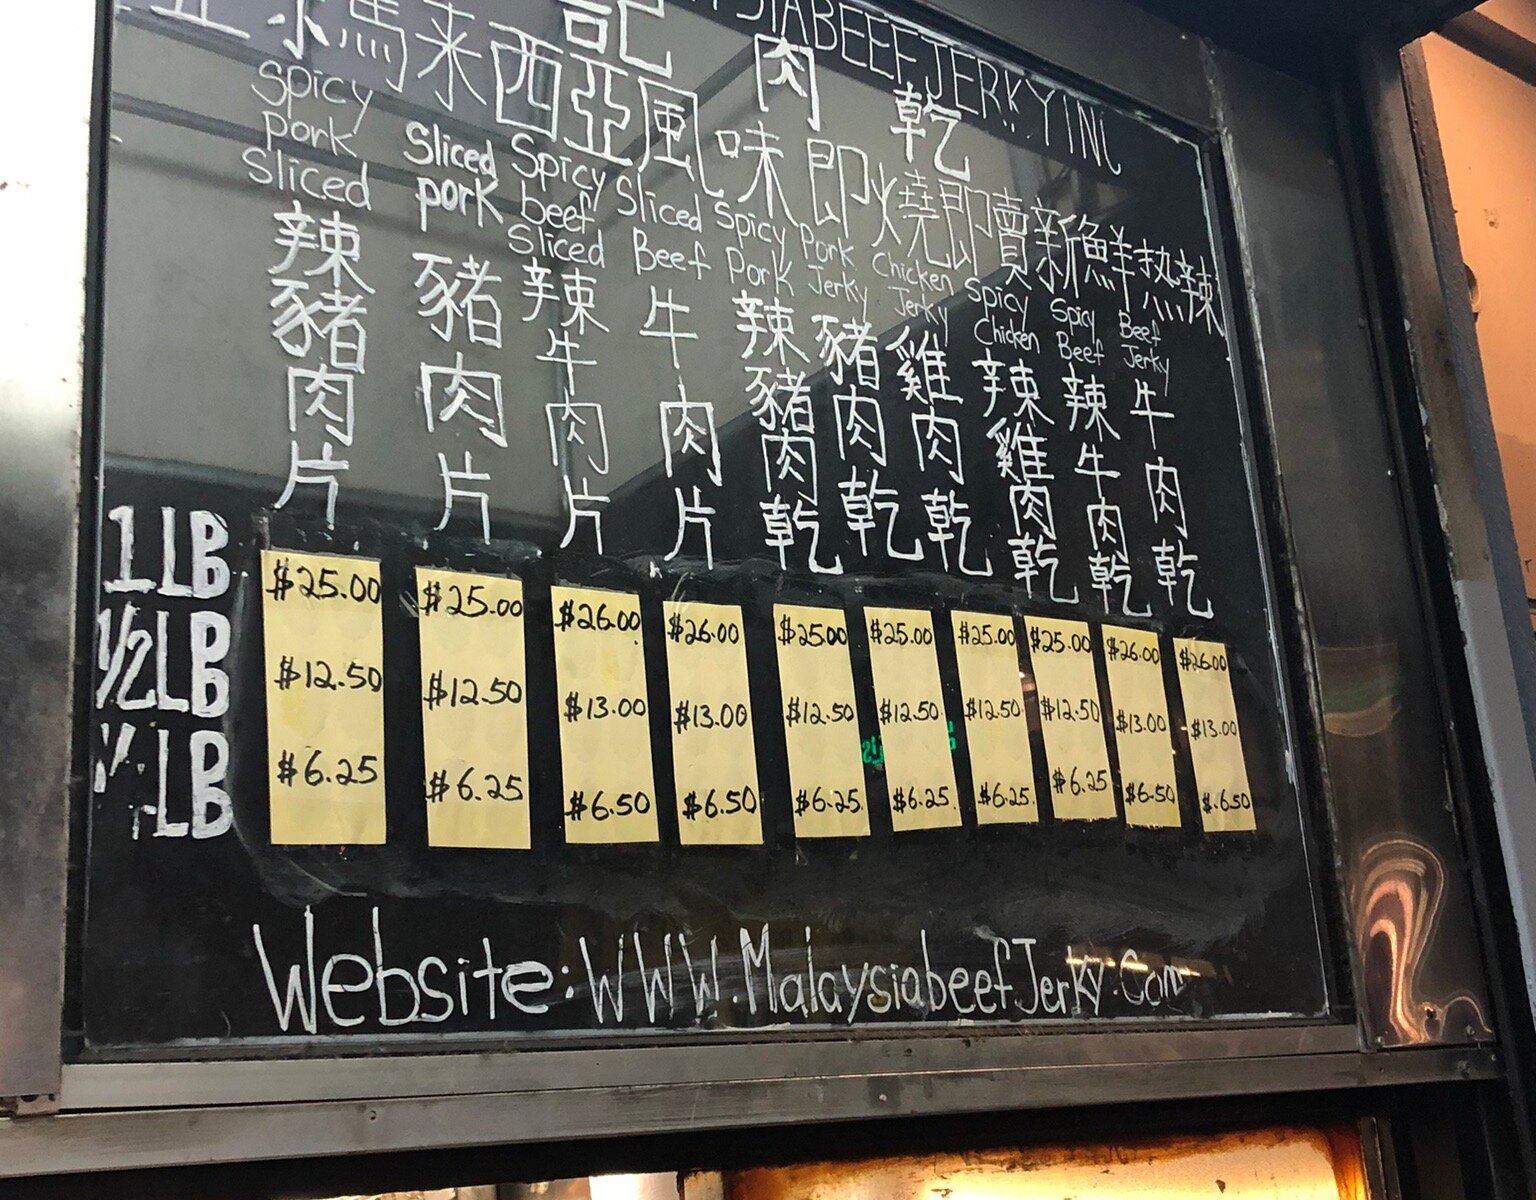 記
SIABEEFJERKYINC
馬来西亞風味即燒即賣新鮮热辣
肉乾
Spicy
pork
Sliced
辣豬肉片
Sliced
pork
豬肉片
Spicy
beef
Sliced
辣牛肉片
Sliced
Beef
牛肉片
Spicy
Pork
辣豬肉乾
Pork
Jerky
豬肉乾
Chicken
Jerky
雞肉乾
Spicy
Chicken
辣雞肉乾
Spicy
Beef
辣牛肉乾
Beef
Jerky
牛肉乾
1 LB $25.00 $25.00 $26.00 $26.00 $25.00 $25.00 $25.00 $25.00 $26.00 $26.00
1/2 LB $12.50 $12.50 $13.00 $13.00 $12.50 $12.50 $12.50 $12.50 $13.00 $13.00
LB $6.25 $6.25 $6.50 $6.50 $6.25 $6.25 $6.25 $6.25 $6.50 $.6.50
Website: WWW.MalaysiabeefJerky.Com